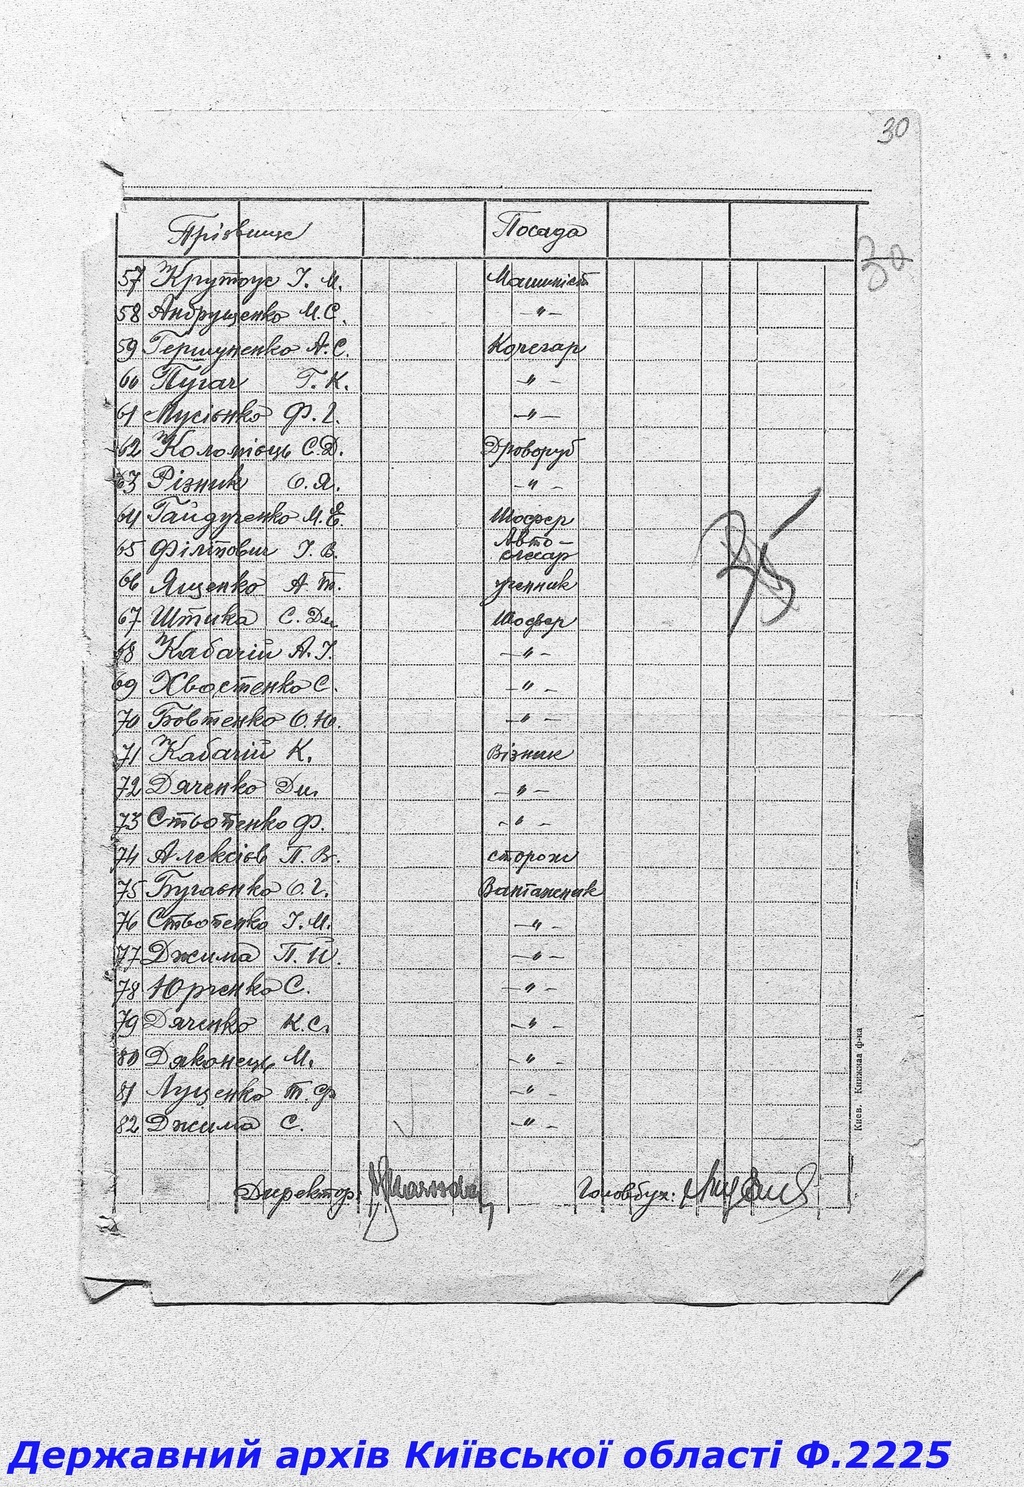 30
Прізвище Посада
30
57 Крутоус І. М. Машиніст
58 Андрущенко М. С. -"-
59 Гермуненко А. С. Кочегар
60 Пугач Г. К. -"-
61 Мусієнко Ф. Г. -"-
62 Коломієць С. Д. Дроворуб
63 Різник О. Я. -"-
64 Гайдученко М. Е. Шофер
65 Філіпович І. В. Авто-
слесар
66 Ященко А. Т. ученник
67 Штика С. Дм. Шофер
68 Кабачій А. І. -"-
69 Хвостенко С. -"-
70 Бовтенко О. Ю. -"-
71 Кабачій К. Візник
72 Дяченко Дм. -"-
73 Стьопенко Ф. -"-
74 Алексіов П. В. сторож
75 Бугаєнко О. Г. Вантажник
76 Стьопенко І. М. -"-
77 Джима П. Й. -"-
78 Юрченко С. -"-
79 Дяченко К. С. -"-
80 Дяконець М. -"-
81 Луценко Т. Ф -"-
82 Джима С. -"-
35
Киев. Книжная ф-ка
Директор: Головбух:
Державний архів Київської області Ф.2225